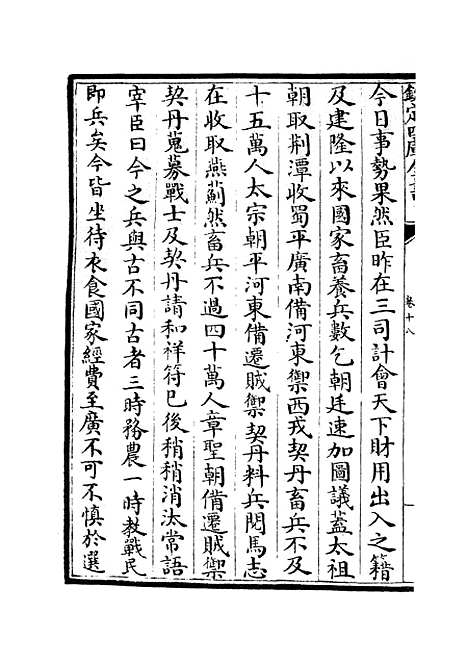 欽定四庫全書
卷十八
今日事勢果然臣昨在三司計會天下財用出入之籍
及建隆以來國家畜養兵數乞朝廷速加圖議蓋太祖
朝取荆潭收蜀平廣南備河東禦西戎契丹畜兵不及
十五萬人太宗朝平河東備遷賊禦契丹料兵閱馬志
在收取燕薊然畜兵不過四十萬人章聖朝備遷賊禦
契丹蒐募戰士及契丹請和祥符已後稍稍消汰常語
宰臣曰今之兵與古不同古者三時務農一時教戰民
即兵矣今皆坐待衣食國家經費至廣不可不慎於選